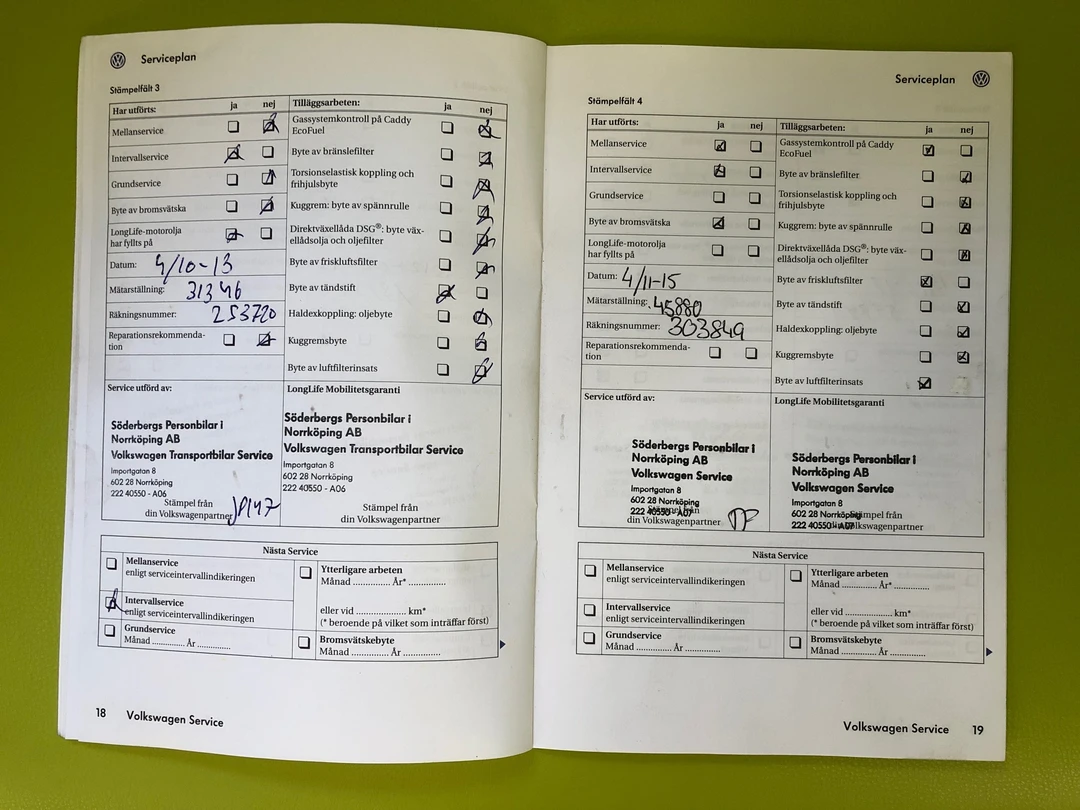 Serviceplan
Stämpelfält 3
Har utförts: ja nej
Mellanservice
Intervallservice
Grundservice
Byte av bromsvätska
LongLife-motorolja
har fyllts på
Datum: 4/10-13
Mätarställning: 31346
Räkningsnummer: 253720
Reparationsrekommenda-
tion
Tilläggsarbeten: ja nej
Gassystemkontroll på Caddy
EcoFuel
Byte av bränslefilter
Torsionselastisk koppling och
frihjulsbyte
Kuggrem: byte av spännrulle
Direktväxellåda DSG®: byte väx-
ellådsolja och oljefilter
Byte av friskluftsfilter
Byte av tändstift
Haldexkoppling: oljebyte
Kuggremsbyte
Byte av luftfilterinsats
Service utförd av:
Söderbergs Personbilar i
Norrköping AB
Volkswagen Transportbilar Service
Importgatan 8
602 28 Norrköping
222 40550 - A06
Stämpel från
din Volkswagenpartner
LongLife Mobilitetsgaranti
Söderbergs Personbilar i
Norrköping AB
Volkswagen Transportbilar Service
Importgatan 8
602 28 Norrköping
222 40550 - A06
Stämpel från
din Volkswagenpartner
Nästa Service
Mellanservice
enligt serviceintervallindikeringen
Intervallservice
enligt serviceintervallindikeringen
Grundservice
Månad .............. År ..............
Ytterligare arbeten
Månad .............. År* ..............
eller vid ...................... km*
(* beroende på vilket som inträffar först)
Bromsvätskebyte
Månad .............. År ..............
18 Volkswagen Service
Serviceplan
Stämpelfält 4
Har utförts: ja nej
Mellanservice
Intervallservice
Grundservice
Byte av bromsvätska
LongLife-motorolja
har fyllts på
Datum: 4/11-15
Mätarställning: 45880
Räkningsnummer: 303849
Reparationsrekommenda-
tion
Tilläggsarbeten: ja nej
Gassystemkontroll på Caddy
EcoFuel
Byte av bränslefilter
Torsionselastisk koppling och
frihjulsbyte
Kuggrem: byte av spännrulle
Direktväxellåda DSG®: byte väx-
ellådsolja och oljefilter
Byte av friskluftsfilter
Byte av tändstift
Haldexkoppling: oljebyte
Kuggremsbyte
Byte av luftfilterinsats
Service utförd av:
Söderbergs Personbilar i
Norrköping AB
Volkswagen Service
Importgatan 8
602 28 Norrköping
Stämpel från
222 40550 - A07
din Volkswagenpartner
LongLife Mobilitetsgaranti
Söderbergs Personbilar i
Norrköping AB
Volkswagen Service
Importgatan 8
602 28 Norrköping
Stämpel från
222 40550 - A07
din Volkswagenpartner
Nästa Service
Mellanservice
enligt serviceintervallindikeringen
Intervallservice
enligt serviceintervallindikeringen
Grundservice
Månad .............. År ..............
Ytterligare arbeten
Månad .............. År* ..............
eller vid ...................... km*
(* beroende på vilket som inträffar först)
Bromsvätskebyte
Månad .............. År ..............
Volkswagen Service 19